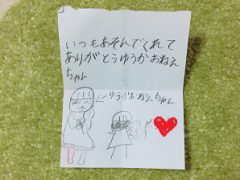 いつもあそんでくれて
ありがとうゆうかおねえ
ちゃん
ゆうかおねえちゃん